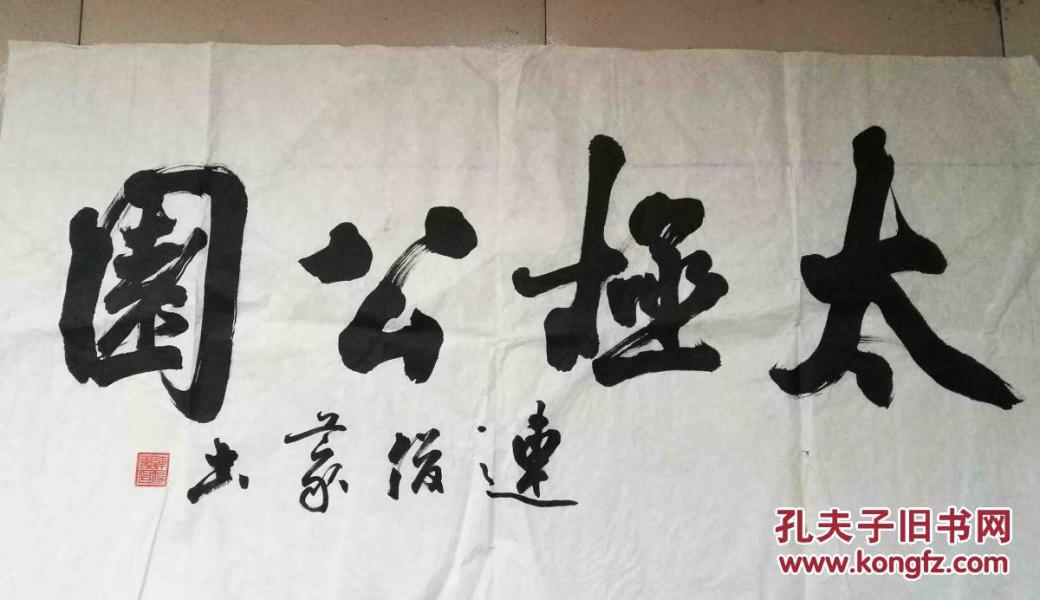 太極公園
連俊義书
孔夫子旧书网
www.kongfz.com